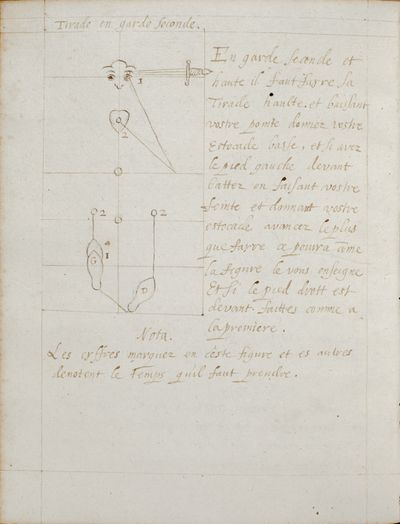 Tirade en garde seconde.
En garde seconde et
haute il faut fayre sa
Tirade haulte. et baissant
vostre pointe donnez vostre
Estocade basse, et si avez
le pied gauche devant
battez en faisant vostre
feinte et donnant vostre
estocade avancez le plus
que fayre ce pourra cõme
la figure le vous enseigne
Et si le pied droit est
devant faittes comme a
la premiere.
1
2
2
2
4
1
G
D
Nota.
Les cyffres marquez en ceste figure et es autres
denotent le Temps qu'il faut prendre.